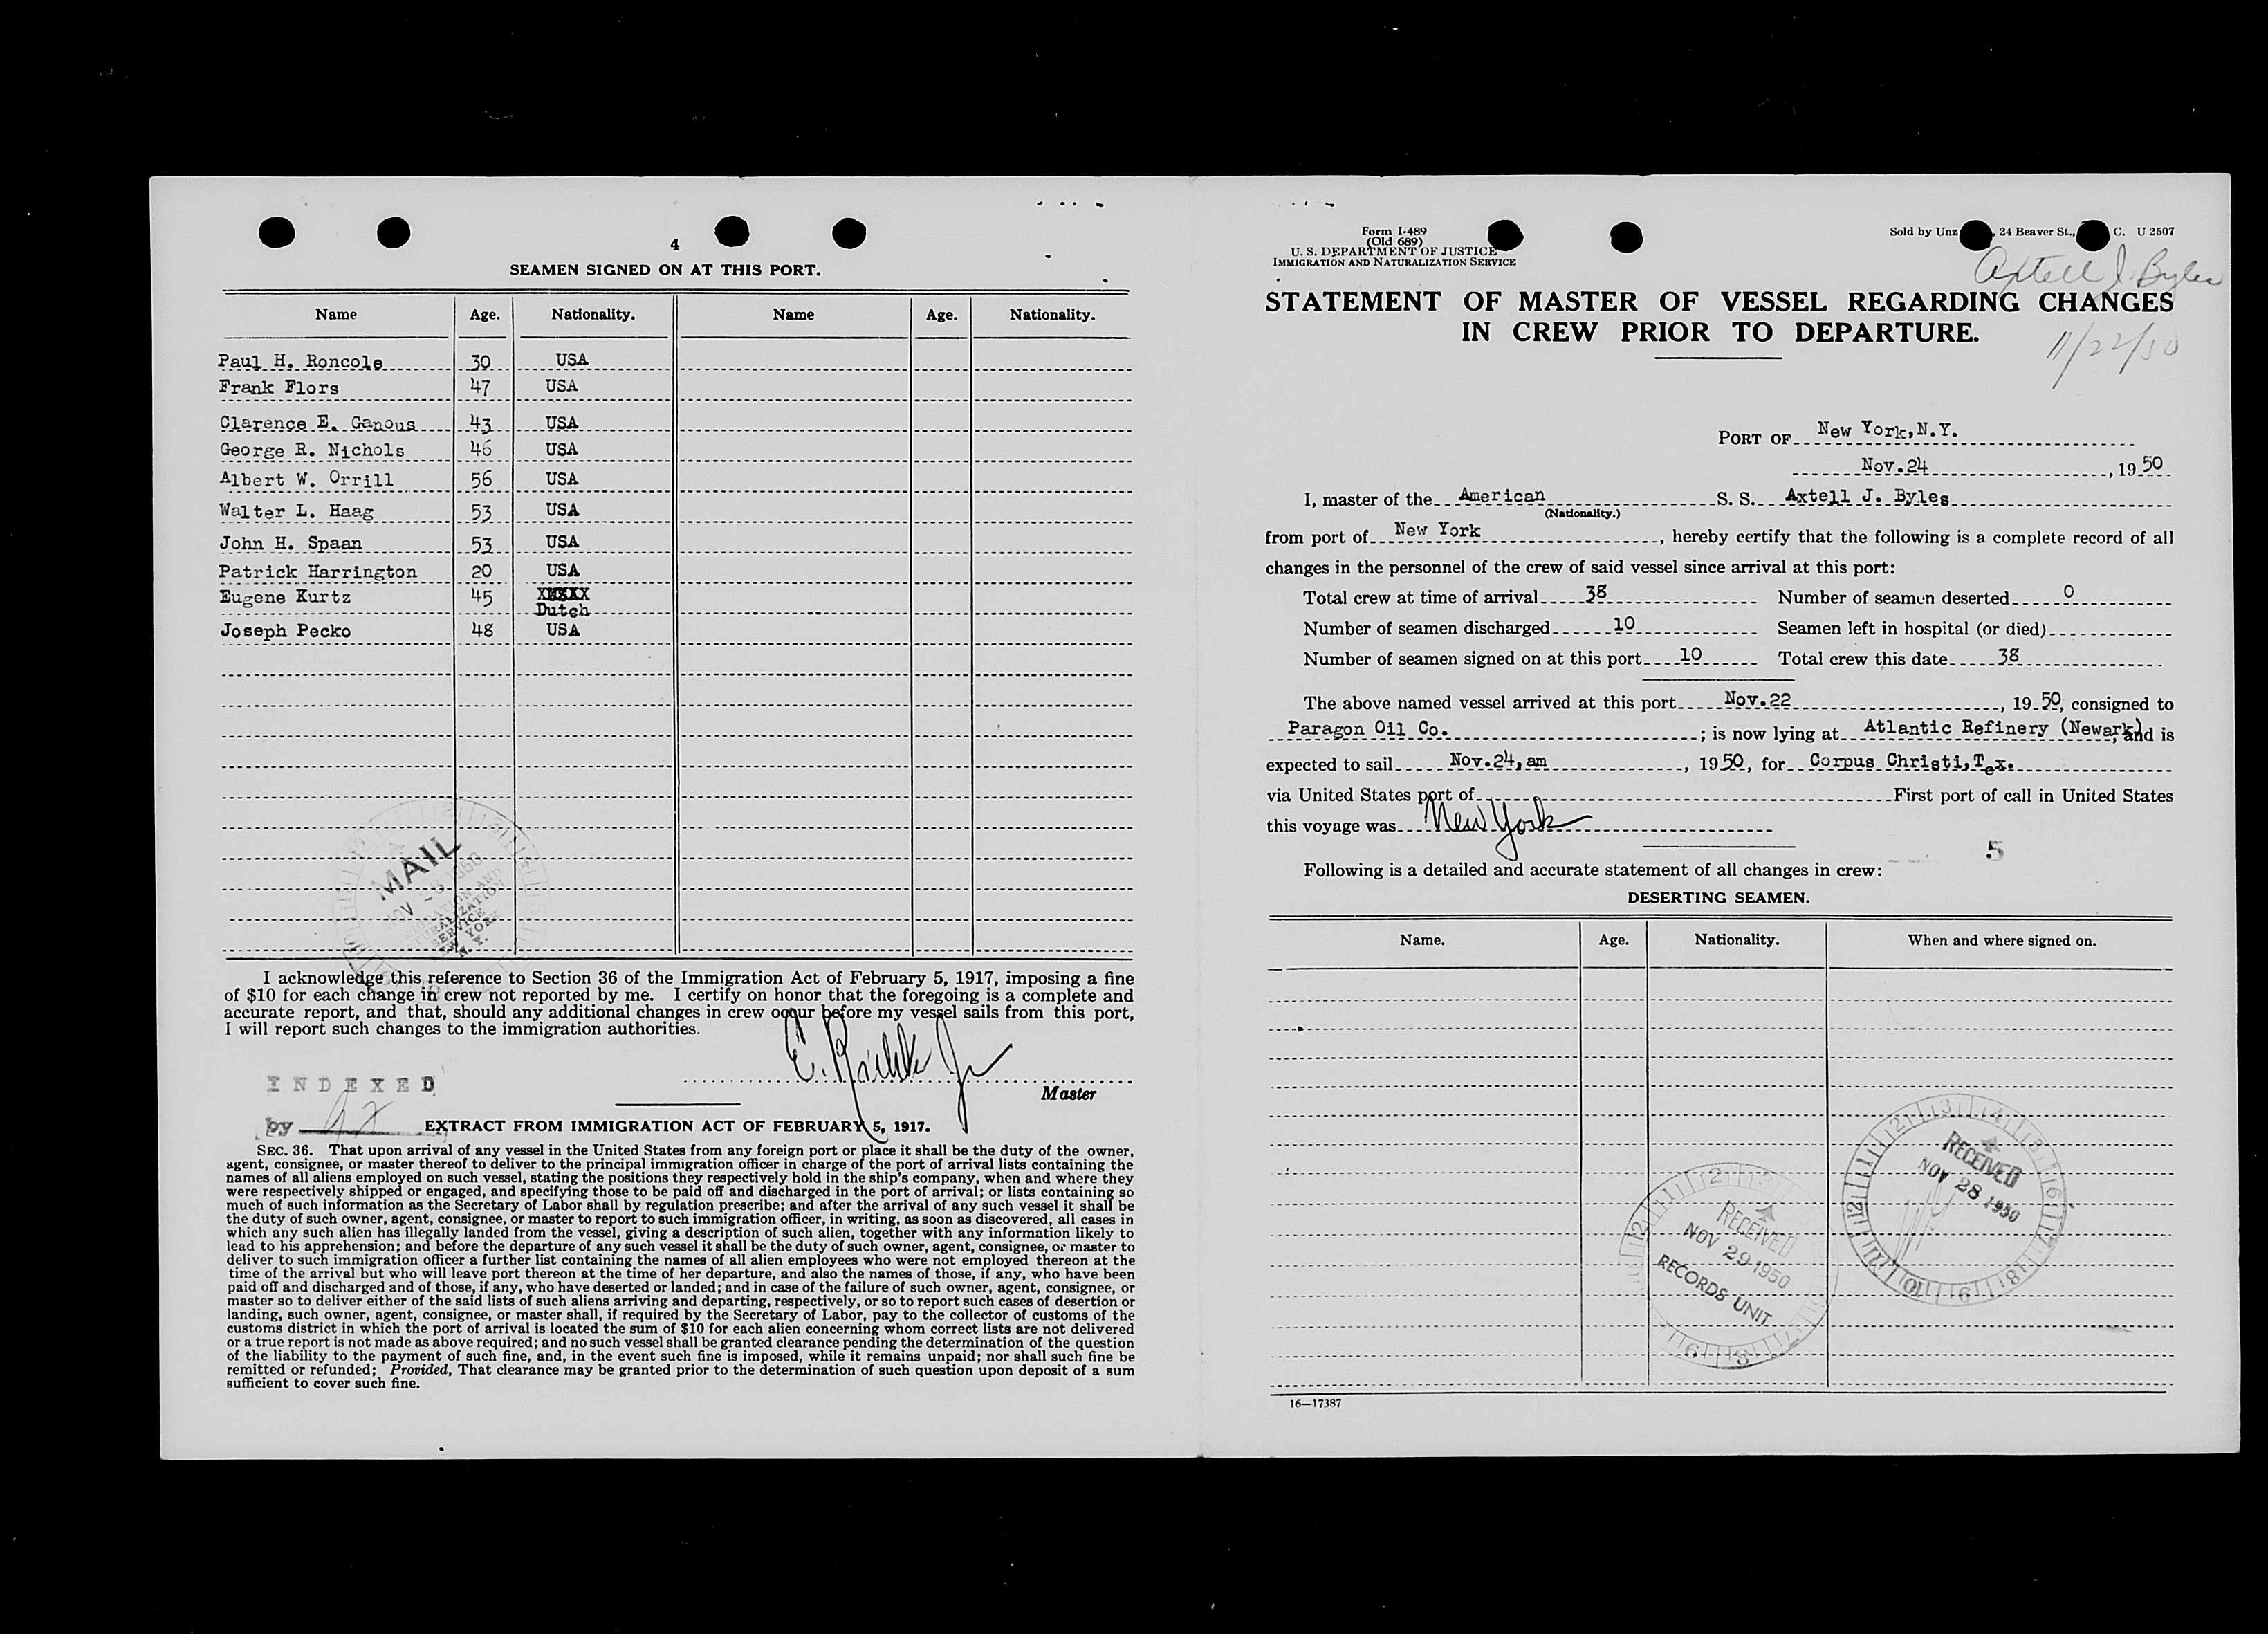 4
SEAMEN SIGNED ON AT THIS PORT.
Name Age. Nationality. Name Age. Nationality.
Paul H. Roncole 30 USA
Frank Flors 47 USA
Clarence E. Ganous 43 USA
George R. Nichols 46 USA
Albert W. Orrill 56 USA
Walter L. Haag 53 USA
John H. Spaan 53 USA
Patrick Harrington 20 USA
Eugene Kurtz 45
Dutch
Joseph Pecko 48 USA
MAIL
NATURALIZATION
SERVICE
NEW YORK
N. Y.
I acknowledge this reference to Section 36 of the Immigration Act of February 5, 1917, imposing a fine
of $10 for each change in crew not reported by me. I certify on honor that the foregoing is a complete and
accurate report, and that, should any additional changes in crew occur before my vessel sails from this port,
I will report such changes to the immigration authorities.
Master
INDEXED
by
EXTRACT FROM IMMIGRATION ACT OF FEBRUARY 5, 1917.
SEC. 36. That upon arrival of any vessel in the United States from any foreign port or place it shall be the duty of the owner,
agent, consignee, or master thereof to deliver to the principal immigration officer in charge of the port of arrival lists containing the
names of all aliens employed on such vessel, stating the positions they respectively hold in the ship's company, when and where they
were respectively shipped or engaged, and specifying those to be paid off and discharged in the port of arrival; or lists containing so
much of such information as the Secretary of Labor shall by regulation prescribe; and after the arrival of any such vessel it shall be
the duty of such owner, agent, consignee, or master to report to such immigration officer, in writing, as soon as discovered, all cases in
which any such alien has illegally landed from the vessel, giving a description of such alien, together with any information likely to
lead to his apprehension; and before the departure of any such vessel it shall be the duty of such owner, agent, consignee, or master to
deliver to such immigration officer a further list containing the names of all alien employees who were not employed thereon at the
time of the arrival but who will leave port thereon at the time of her departure, and also the names of those, if any, who have been
paid off and discharged and of those, if any, who have deserted or landed; and in case of the failure of such owner, agent, consignee, or
master so to deliver either of the said lists of such aliens arriving and departing, respectively, or so to report such cases of desertion or
landing, such owner, agent, consignee, or master shall, if required by the Secretary of Labor, pay to the collector of customs of the
customs district in which the port of arrival is located the sum of $10 for each alien concerning whom correct lists are not delivered
or a true report is not made as above required; and no such vessel shall be granted clearance pending the determination of the question
of the liability to the payment of such fine, and, in the event such fine is imposed, while it remains unpaid; nor shall such fine be
remitted or refunded; Provided, That clearance may be granted prior to the determination of such question upon deposit of a sum
sufficient to cover such fine.
Form I-489
(Old 689)
U. S. DEPARTMENT OF JUSTICE
IMMIGRATION AND NATURALIZATION SERVICE
Sold by Unz 24 Beaver St., C. U 2507
Axtell J. Byles
STATEMENT OF MASTER OF VESSEL REGARDING CHANGES
IN CREW PRIOR TO DEPARTURE.
11/22/50
PORT OF New York, N.Y.
Nov. 24, 1950
I, master of the American S. S. Axtell J. Byles
(Nationality.)
from port of New York, hereby certify that the following is a complete record of all
changes in the personnel of the crew of said vessel since arrival at this port:
Total crew at time of arrival 38 Number of seamen deserted 0
Number of seamen discharged 10 Seamen left in hospital (or died)
Number of seamen signed on at this port 10 Total crew this date 38
The above named vessel arrived at this port Nov. 22, 1950, consigned to
Paragon Oil Co.; is now lying at Atlantic Refinery (Newark), and is
expected to sail Nov. 24, am, 1950, for Corpus Christi, Tex.
via United States port of First port of call in United States
this voyage was New York
5
Following is a detailed and accurate statement of all changes in crew:
DESERTING SEAMEN.
Name. Age. Nationality. When and where signed on.
RECEIVED
NOV 28 1950
RECEIVED
NOV 29 1950
RECORDS UNIT
16—17387